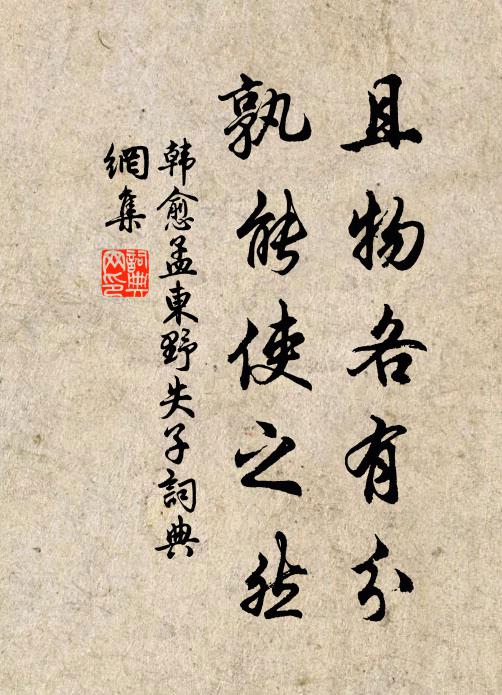 且物各有分
孰能使之然
韩愈孟東野失子詞典
網集
詞典
网印